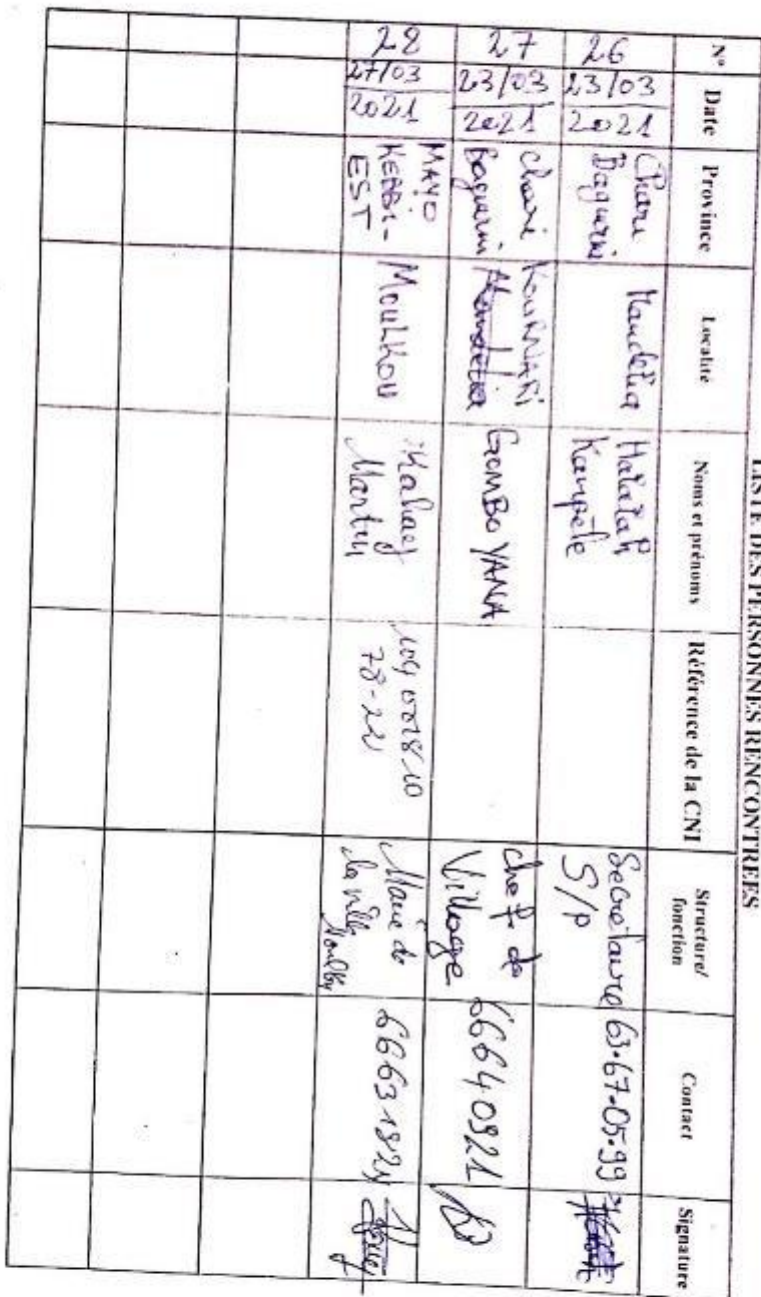 LISTE DES PERSONNES RENCONTREES
N° Date Province Localité Noms et prénoms Référence de la CNI Structure/ fonction Contact Signature
26 23/03 2021 Chari Baguirmi Mandelia Halatah Kampété Secrétaire S/P 63-67-05-99
27 23/03 2021 Chari Baguirmi KOURNARI GOMBO YANA chef de Village 66640921
28 27/03 2021 MAYO KEBBI-EST MOULKOU Martin 78-22 Maire de la ville